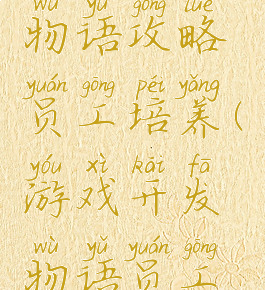 wù yǔ gōng lüè
物语攻略
yuán gōng péi yǎng
员工培养(
yóu xì kāi fā
游戏开发
wù yǔ yuán gōng
物语员工